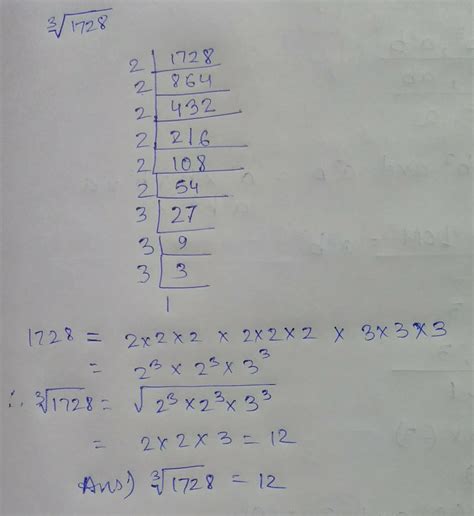 ∛1728
2 | 1728
2 | 864
2 | 432
2 | 216
2 | 108
2 | 54
3 | 27
3 | 9
3 | 3
1
1728 = 2×2×2 × 2×2×2 × 3×3×3
= 2³ × 2³ × 3³
∴ ∛1728 = √2³×2³×3³
= 2×2×3 = 12
Ans) ∛1728 = 12